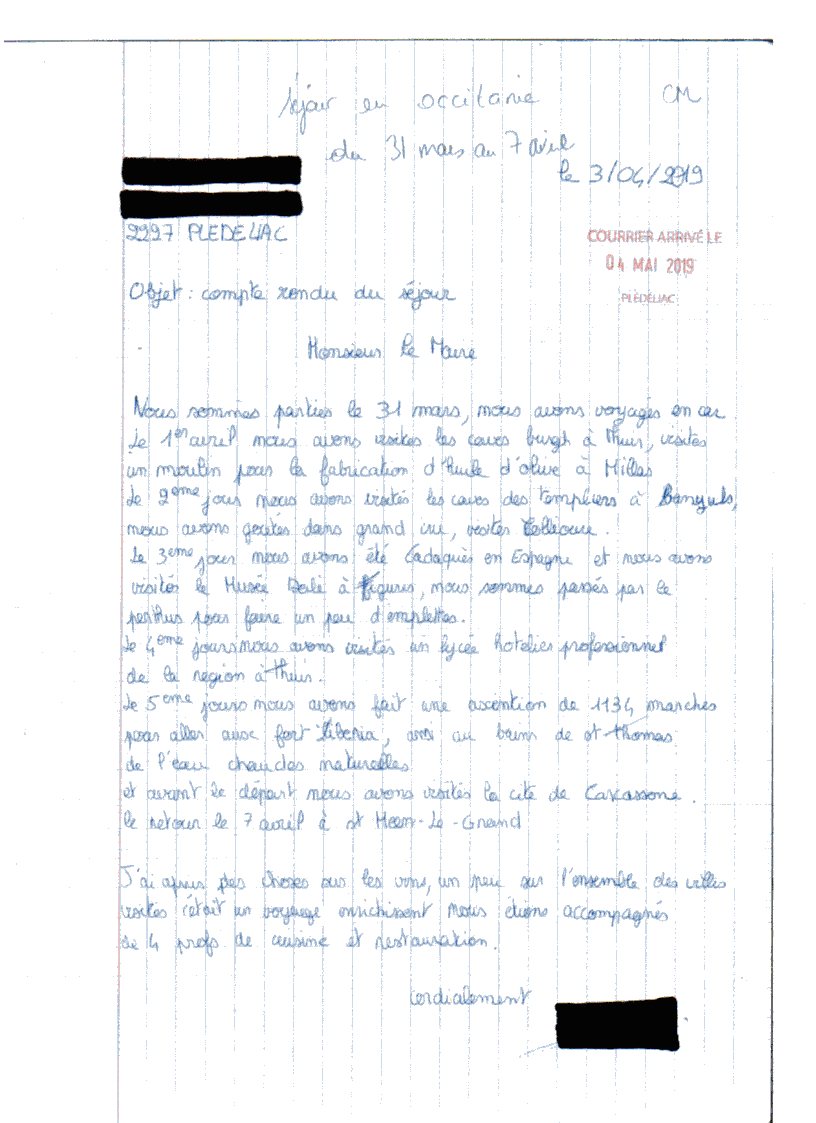 séjour en occitanie CM
du 31 mars au 7 avril
le 3/04/2019
2227 PLEDELIAC
COURRIER ARRIVÉ LE
04 MAI 2019
PLÉDÉLIAC
Objet : compte rendu du séjour
Monsieur le Maire
Nous sommes parties le 31 mars, nous avons voyagés en car
Le 1er avril nous avons visités les caves à thuir, visités
un moulin pour la fabrication d'huile d'olive à Millas
Le 2eme jour nous avons visités les caves des templiers à Banyuls,
nous avons goutés dans grand cru, visités Collioure.
Le 3eme jour nous avons été Cadaquès en Espagne et nous avons
visités le Musée Dali à figuris, nous sommes passés par le
perthus pour faire un peu d'emplettes.
Le 4eme jours nous avons visités un lycée hotelier professionnel
de la region à thuir.
Le 5eme jours nous avons fait une ascention de 1134 marches
pour aller fort Liberia, au bain de st thomas
de l'eau chaudes naturelles
et avant le départ nous avons visités la cité de Carcassone.
le retour le 7 avril à st Meen-Le-Grand
J'ai apris des choses sur les vins, un peu sur l'ensemble des villes
visités c'était un voyage enrichissent nous étions accompagnés
de 4 profs de cuisine et restauration.
cordialement